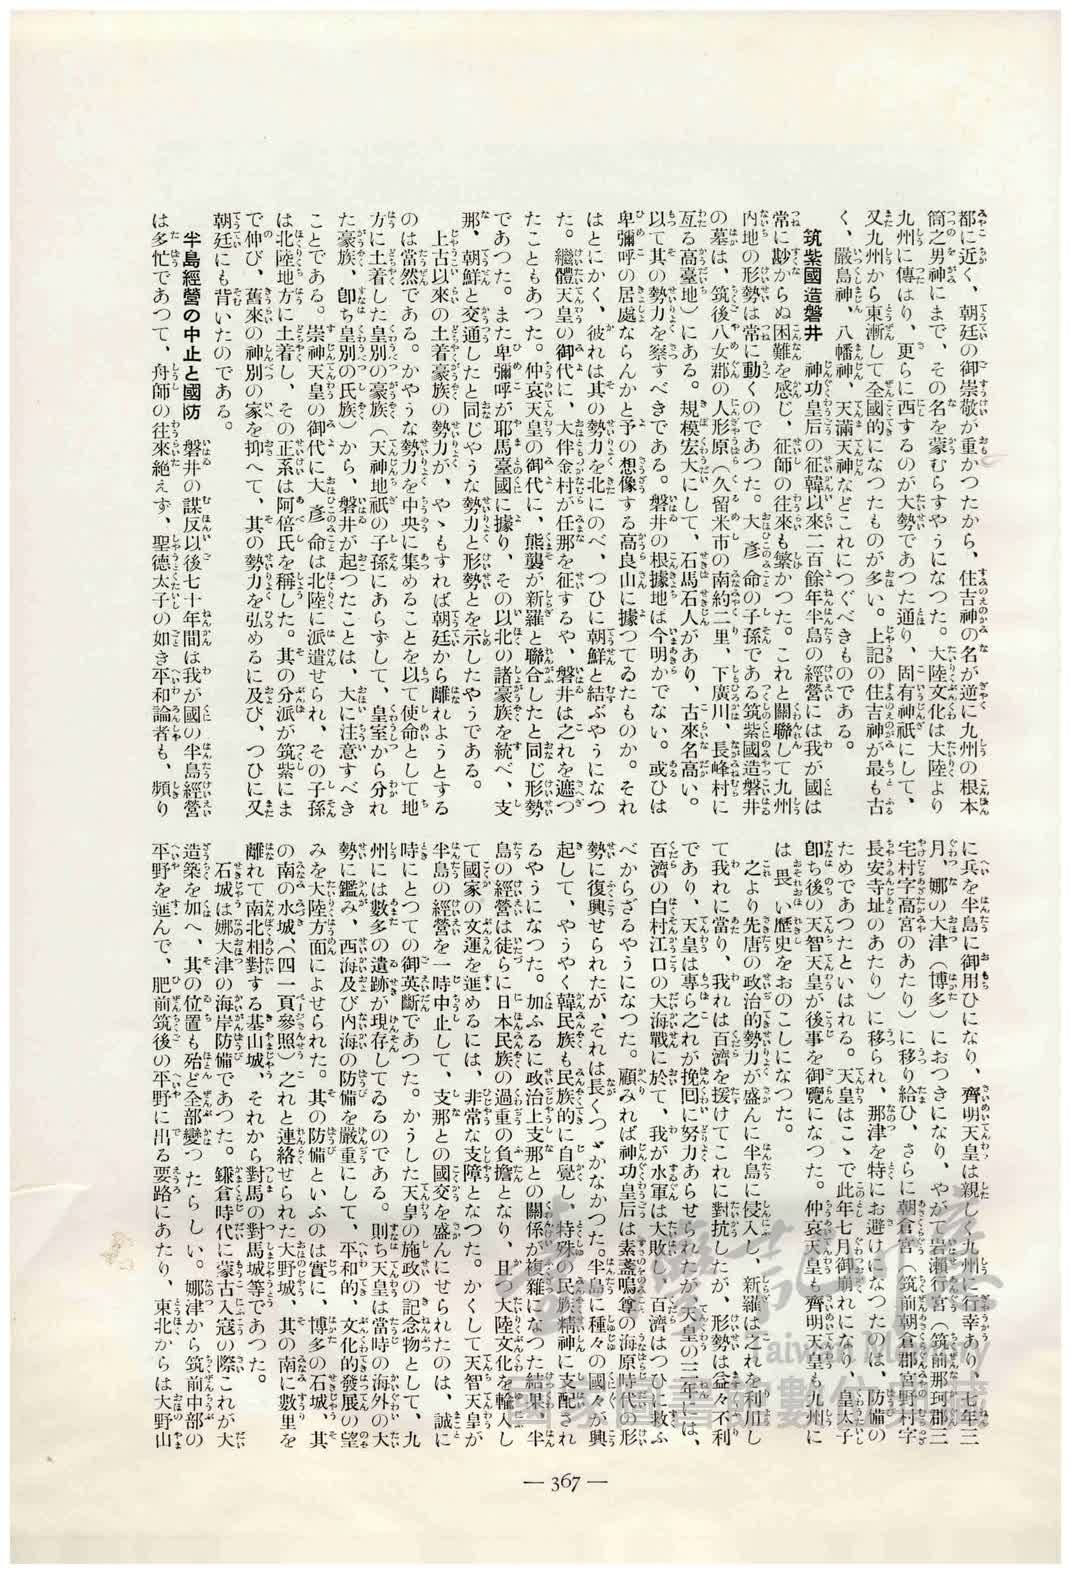 都に近く、朝廷の御崇敬が重かつたから、住吉神の名が逆に九州の根本
筒之男神にまで、その名を蒙むらすやうになつた。大陸文化は大陸より
九州に傳はり、更らに西するのが大勢であつた通り、固有神祇にして、
又九州から東漸して全國的になつたものが多い。上記の住吉神が最も古
く、嚴島神、八幡神、天滿天神などこれにつぐべきものである。
筑紫國造磐井 神功皇后の征韓以來二百餘年半島の經營には我が國は
常に尠からぬ困難を感じ、征師の往來も繁かつた。これと關聯して九州
内地の形勢は常に動くのであつた。大彦命の子孫である筑紫國造磐井
の墓は、筑後八女郡の人形原(久留米市の南約二里、下廣川、長峰村に
亙る高臺地)にある。規模宏大にして、石馬石人があり、古來名高い。
以て其の勢力を察すべきである。磐井の根據地は今明かでない。或ひは
卑彌呼の居處ならんかと予の想像する高良山に據つてゐたものか。それ
はとにかく、彼れは其の勢力を北にのべ、つひに朝鮮と結ぶやうになつ
た。繼體天皇の御代に、大伴金村が任那を征するや、磐井は之れを遮つ
たこともあつた。仲哀天皇の御代に、熊襲が新羅と聯合したと同じ形勢
であつた。また卑彌呼が耶馬臺國に據り、その以北の諸豪族を統べ、支
那、朝鮮と交通したと同じやうな勢力と形勢とを示したやうである。
上古以來の土着豪族の勢力が、やゝもすれば朝廷から離れようとする
のは當然である。かやうな勢力を中央に集めることを以て使命として地
方に土着した皇別の豪族(天神地祇の子孫にあらずして、皇室から分れ
た豪族、卽ち皇別の氏族)から、磐井が起つたことは、大に注意すべき
ことである。崇神天皇の御代に大彦命は北陸に派遣せられ、その子孫
は北陸地方に土着し、その正系は阿倍氏を稱した。其の分派が筑紫にま
で伸び、舊來の神別の家を抑へて、其の勢力を弘めるに及び、つひに又
朝廷にも背いたのである。
半島經營の中止と國防 磐井の謀反以後七十年間は我が國の半島經營
は多忙であつて、舟師の往來絶えず、聖德太子の如き平和論者も、頻り
に兵を半島に御用ひになり、齊明天皇は親しく九州に行幸あり、七年三
月、娜の大津(博多)におつきになり、やがて岩瀬行宮(筑前那珂郡三
宅村字高宮のあたり)に移り給ひ、さらに朝倉宮(筑前朝倉郡宮野村字
長安寺址のあたり)に移られ、那津を特にお避けになつたのは、防備の
ためであつたといはれる。天皇はこゝで此年七月御崩れになり、皇太子
卽ち後の天智天皇が後事を御覽になつた。仲哀天皇も齊明天皇も九州に
は畏い歴史をおのこしになつた。
之より先唐の政治的勢力が盛んに半島に侵入し、新羅は之れを利用し
て我れに當り、我れは百濟を援けてこれに對抗したが、形勢は益々不利
であり、天皇は專ら之れが挽囘に努力あらせられたが、天皇の三年には、
百濟の白村江口の大海戰に於て、我が水軍は大敗し、百濟はつひに救ふ
べからざるやうになつた。顧みれば神功皇后は素盞嗚尊の海原時代の形
勢に復興せられたが、それは長くつゞかなかつた。半島に種々の國々が興
起して、やうやく韓民族も民族的に自覺し、特殊の民族精神に支配され
るやうになつた。加ふるに政治上支那との關係が複雜になつた結果、半
島の經營は徒らに日本民族の過重の負擔となり、且つ大陸文化を輸入し
て國家の文運を進めるには、非常な支障となつた。かくして天智天皇が
半島の經營を一時中止して、支那との國交を盛んにせられたのは、誠に
時にとつての御英斷であつた。かうした天皇の施政の記念物として、九
州には數多の遺跡が現存してゐるのである。則ち天皇は當時の海外の大
勢に鑑み、西海及び内海の防備を嚴重にして、平和的、文化的發展の望
みを大陸方面によせられた。其の防備といふのは實に、博多の石城、其
の南の水城、(四一頁參照)之れと連絡せられた大野城、其の南に數里を
離れて南北相對する基山城、それから對馬の對馬城等であつた。
石城は娜大津の海岸防備であつた。鎌倉時代に蒙古入寇の際これが大
造築を加へ、其の位置も殆ど全部變つたらしい。娜津から筑前中部の
平野を進んで、肥前筑後の平野に出る要路にあたり、東北からは大野山
— 367 —
臺灣記憶
Taiwan Memory
國家圖書館數位典藏